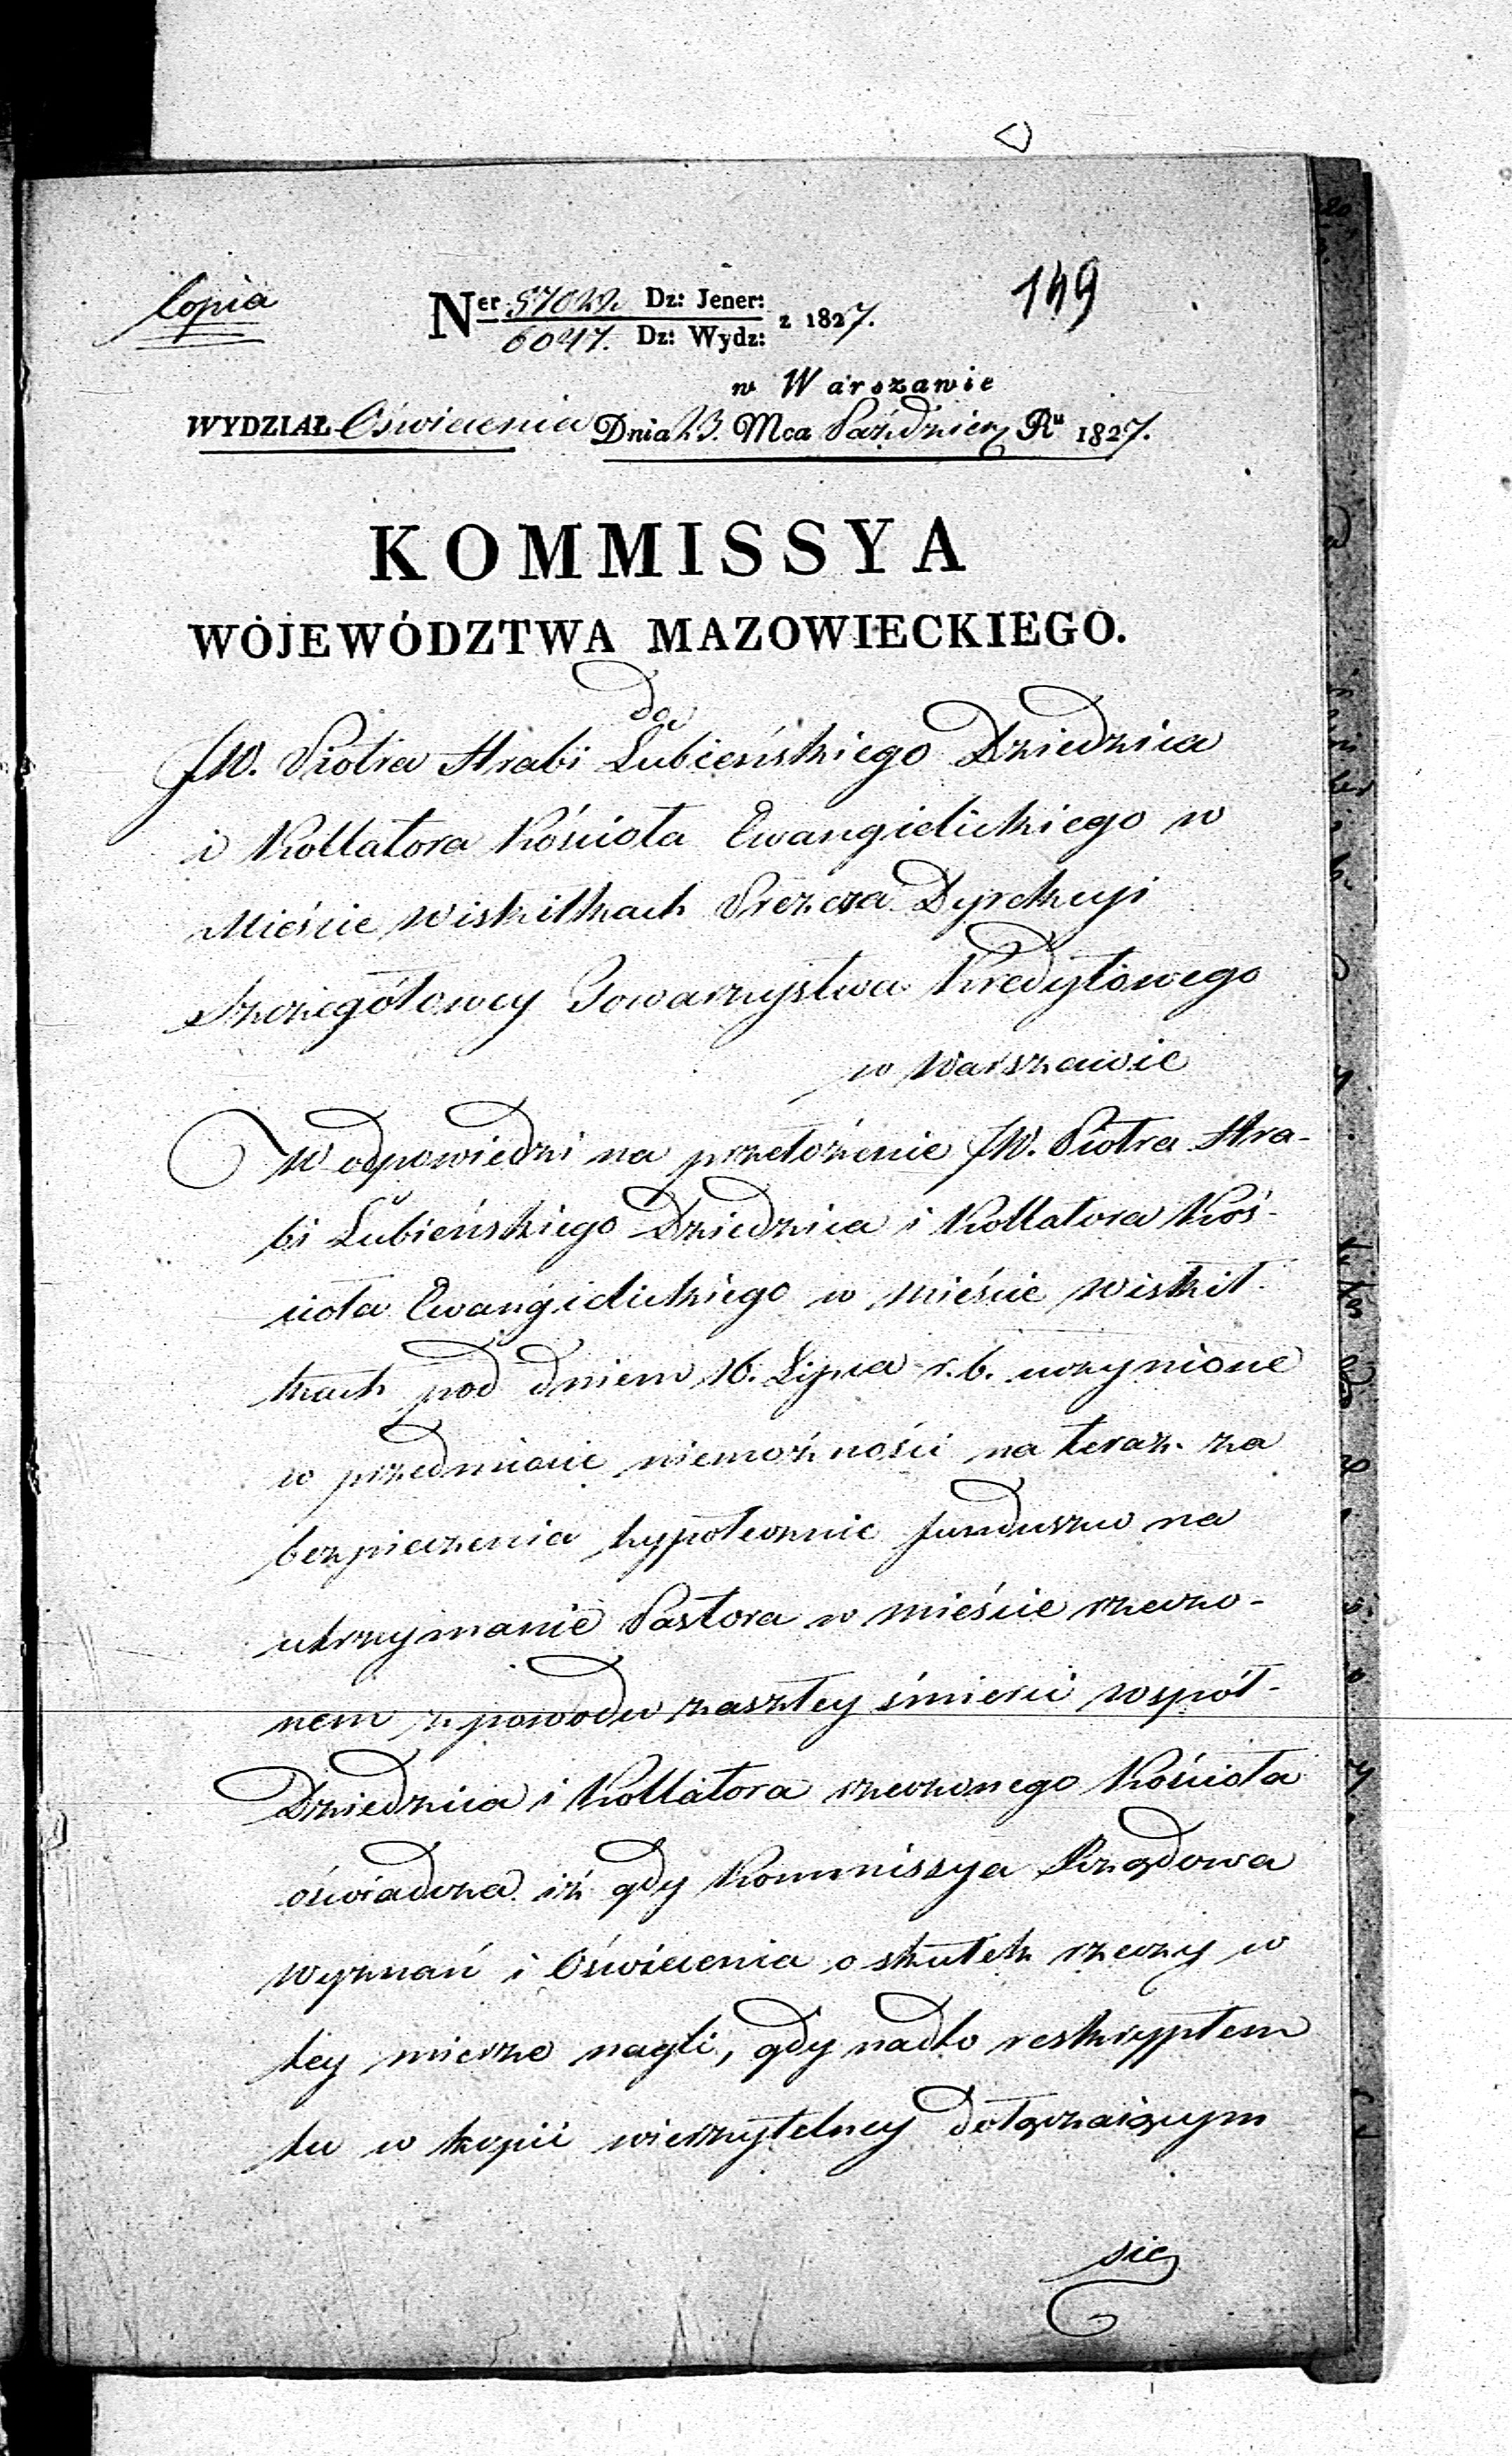 Copia
149
Ner 57022. Dz: Jener:
6047. Dz: Wydz: z 1827.
w Warszawie
WYDZIAŁ Oświecenia Dnia 23. Mca Październ Ru 1827.
KOMMISSYA
WOJEWÓDZTWA MAZOWIECKIEGO.
do
JW. Piotra Hrabi Łubieńskiego Dziedzica
i Kollatora Kościoła Ewangielickiego w
Mieście Wiskitkach Prezesa Dyrekcyi
Szczegółowey Towarzystwa Kredytowego
w Warszawie
W odpowiedzi na przełożenie JW. Piotra Hra-
bi Łubieńskiego Dziedzica i Kollatora Koś-
cioła Ewangielickiego w mieście Wiskit-
kach pod dniem 16. Lipca r. b. uczynione
w przedmiocie niemożności na teraz za
bezpieczenia hypotecznie funduszu na
utrzymanie Pastora w mieście rzeczo-
nem z powodu zaszłey śmierci współ-
Dziedzica i Kollatora rzeczonego Kościoła
oświadcza iż gdy Kommissya Rządowa
Wyznań i Oświecenia o skutek rzeczy w
tey mierze nagli, gdy nadto reskryptem
tu w kopii wierzytelney dołączaiącym
się